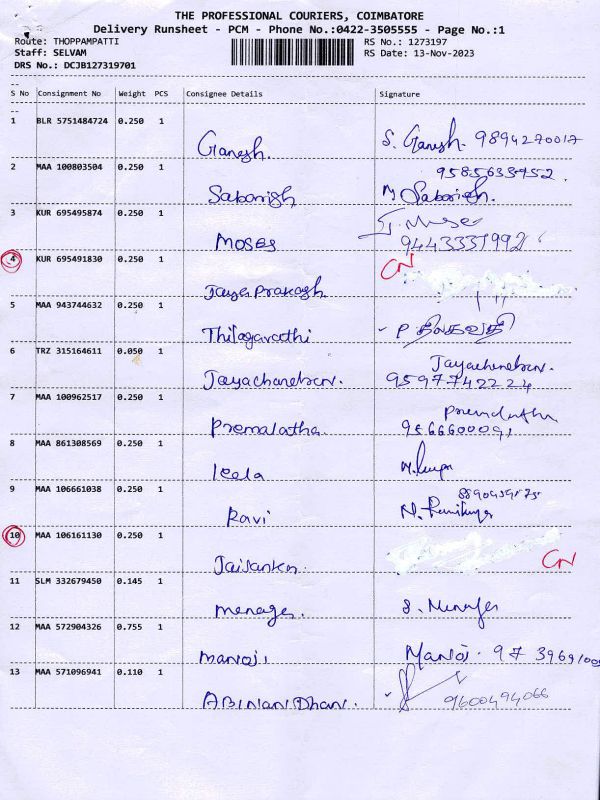 THE PROFESSIONAL COURIERS, COIMBATORE
Delivery Runsheet - PCM - Phone No.:0422-3505555 - Page No.:1
Route: THOPPAMPATTI RS No.: 1273197
Staff: SELVAM RS Date: 13-Nov-2023
DRS No.: DCJB127319701
S No Consignment No Weight PCS Consignee Details Signature
1 BLR 5751484724 0.250 1
Ganesh. S. Ganesh. 9894270017
2 MAA 100803504 0.250 1 9585633752.
Sabarish M Sabarish.
3 KUR 695495874 0.250 1
MOSES 9443331992
4 KUR 695491830 0.250 1 CN
Jaya prakash.
5 MAA 943744632 0.250 1
Thilagavathi P திலகவதி
6 TRZ 315164611 0.050 1 Jayachandran.
Jayachandran. 9597742224
7 MAA 100962517 0.250 1 Premalatha
Premalatha. 9566600091
8 MAA 861308569 0.250 1
leela
9 MAA 106661038 0.250 1
Ravi
10 MAA 106161130 0.250 1
Jaisankar CN
11 SLM 332679450 0.145 1
manager.
12 MAA 572904326 0.755 1
manoj Manoj. 97 39691005
13 MAA 571096941 0.110 1
ABINANDHAN. 9600494066